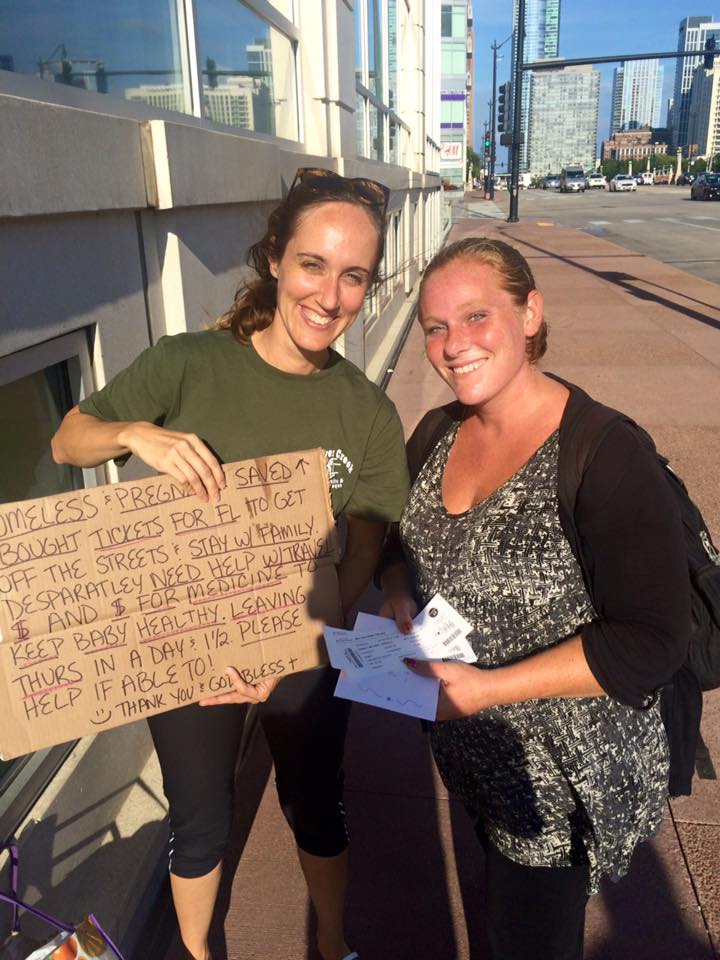 H&M
OMELESS & PREGNANT SAVED ↑
BOUGHT TICKETS FOR FL TO GET
OFF THE STREETS & STAY W/ FAMILY.
DESPARATLEY NEED HELP W/TRAVEL
$ AND $ FOR MEDICINE TO
KEEP BABY HEALTHY. LEAVING
THURS IN A DAY & 1½ PLEASE
HELP IF ABLE TO!
☺ THANK YOU & GOD BLESS +
Creek